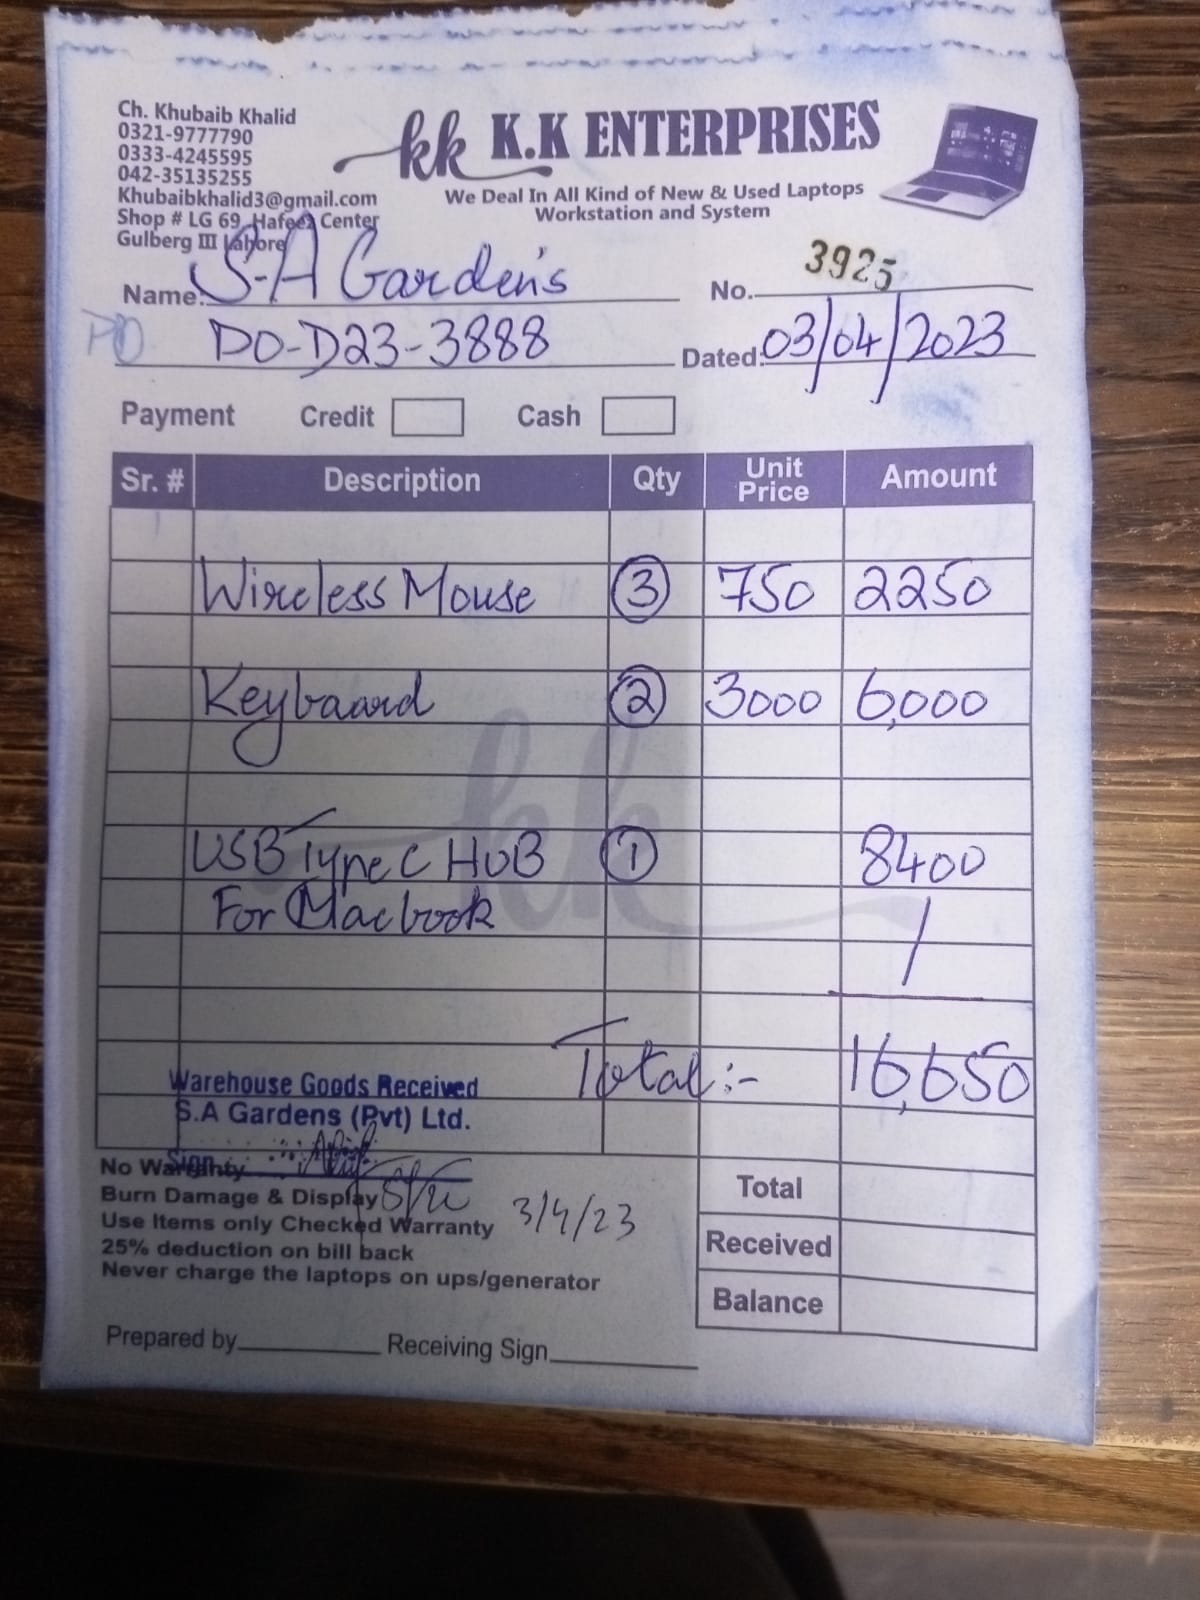 Ch. Khubaib Khalid
0321-9777790
0333-4245595
042-35135255
Khubaibkhalid3@gmail.com
Shop # LG 69, Hafeez Center
Gulberg III Lahore
kk K.K ENTERPRISES
We Deal In All Kind of New & Used Laptops
Workstation and System
Name: S-A Garden's No. 3925
PO DO-D23-3888 Dated: 03/04/2023
Payment Credit Cash
Sr. # Description Qty Unit Price Amount
Wireless Mouse 3 750 2250
Keybaard 2 3000 6,000
USB Type C HUB 1 8400
For Macbook
Total:- 16,650
Warehouse Goods Received
S.A Gardens (Pvt) Ltd.
Sign
No Warranty
Burn Damage & Display
Use Items only Checked Warranty 3/4/23
25% deduction on bill back
Never charge the laptops on ups/generator
Total
Received
Balance
Prepared by Receiving Sign